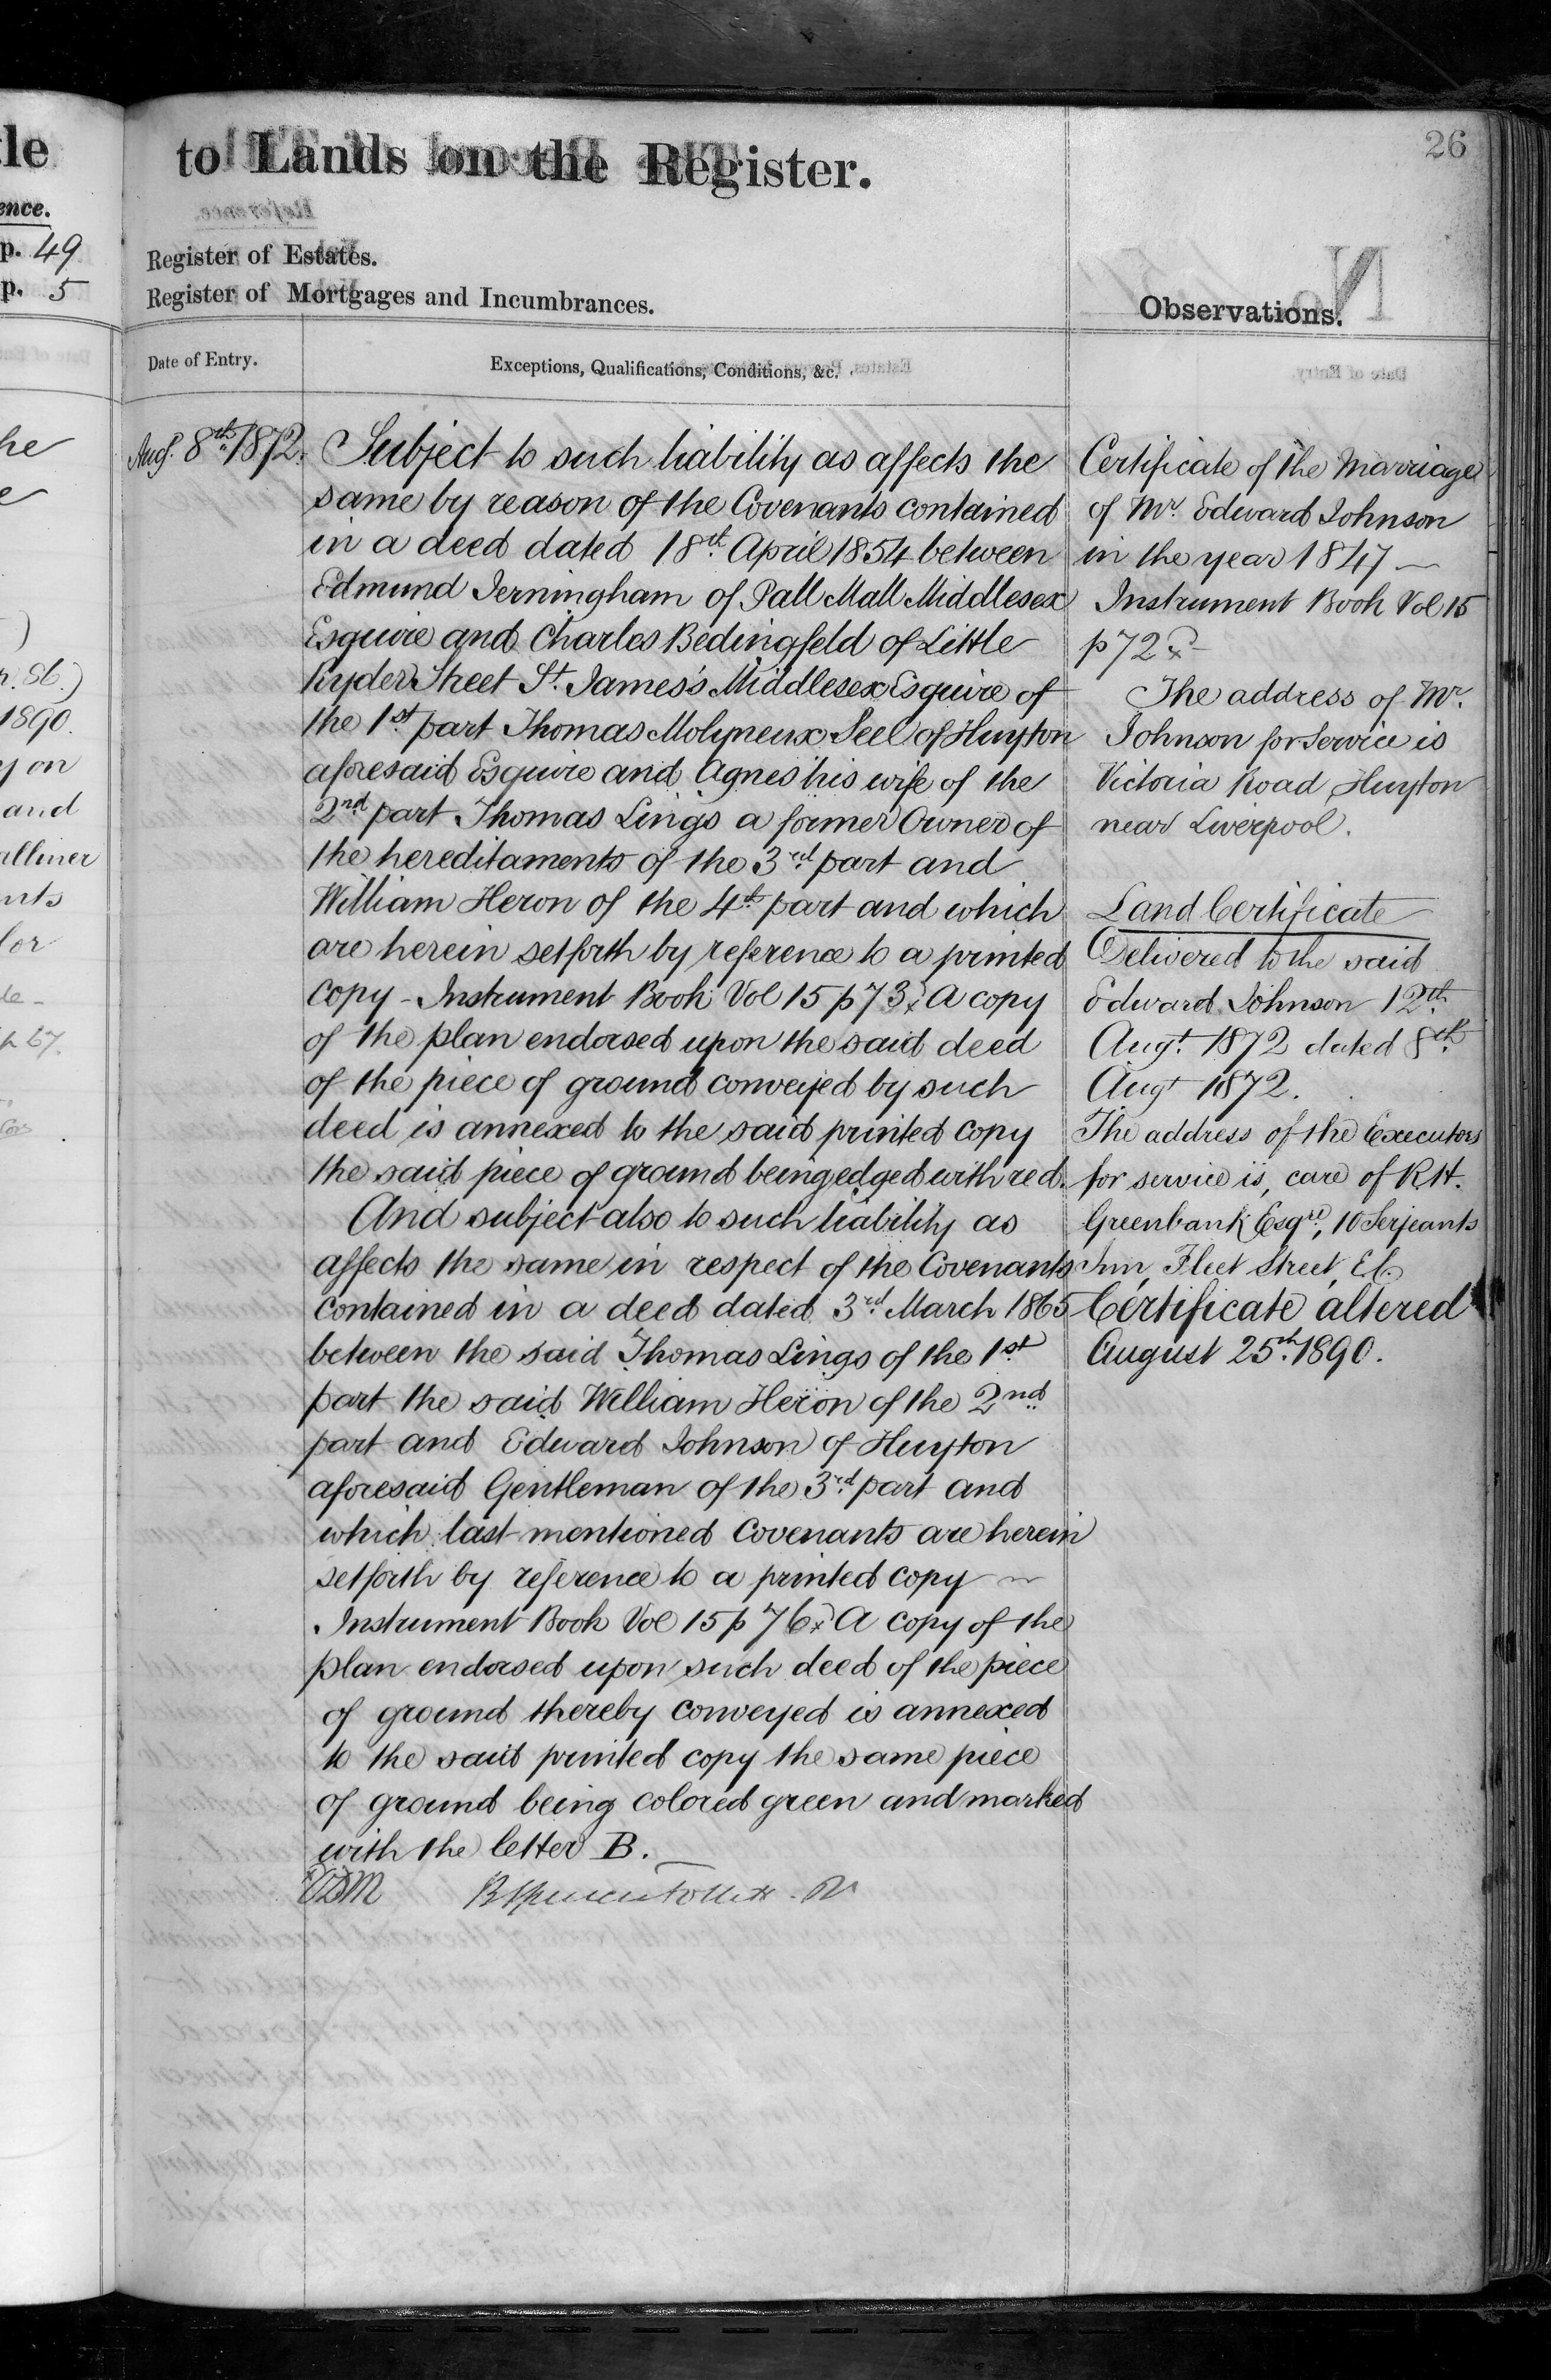 tle
ence.
p. 49
p. 5
he
1890.
y on
and
alliner
nts
for
p 67.
to Lands on the Register.
26
Register of Estates.
Register of Mortgages and Incumbrances.
Observations.
Date of Entry.
Exceptions, Qualifications, Conditions, &c.
Augt. 8th. 1872.
Subject to such liability as affects the
same by reason of the Covenants contained
in a deed dated 18th. April 1854 between
Edmund Jerningham of Pall Mall Middlesex
Esquire and Charles Bedingfeld of Little
Ryder Street St. James's Middlesex Esquire of
the 1st. part Thomas Molyneux Seel of Huyton
aforesaid Esquire and Agnes his wife of the
2nd. part Thomas Lings a former Owner of
the hereditaments of the 3rd. part and
William Heron of the 4th. part and which
are herein setforth by reference to a printed
copy - Instrument Book Vol 15 p 73. A copy
of the plan endorsed upon the said deed
of the piece of ground conveyed by such
deed is annexed to the said printed copy
the said piece of ground being edged with red.
And subject also to such liability as
affects the same in respect of the Covenants
contained in a deed dated 3rd. March 1865
between the said Thomas Lings of the 1st.
part the said William Heron of the 2nd.
part and Edward Johnson of Huyton
aforesaid Gentleman of the 3rd. part and
which last mentioned Covenants are herein
setforth by reference to a printed copy
Instrument Book Vol 15 p 76. A copy of the
plan endorsed upon such deed of the piece
of ground thereby conveyed is annexed
to the said printed copy the same piece
of ground being colored green and marked
with the letter B.
Certificate of the Marriage
of Mr. Edward Johnson
in the year 1847 —
Instrument Book Vol 15
p 72
The address of Mr.
Johnson for Service is
Victoria Road Huyton
near Liverpool.
Land Certificate
Delivered to the said
Edward Johnson 12th.
Augt. 1872 dated 8th.
Augt 1872.
The address of the Executors
for service is, care of R.H.
Greenbank Esqre., 10 Serjeants
Inn, Fleet Street, E.C.
Certificate altered
August 25th. 1890.